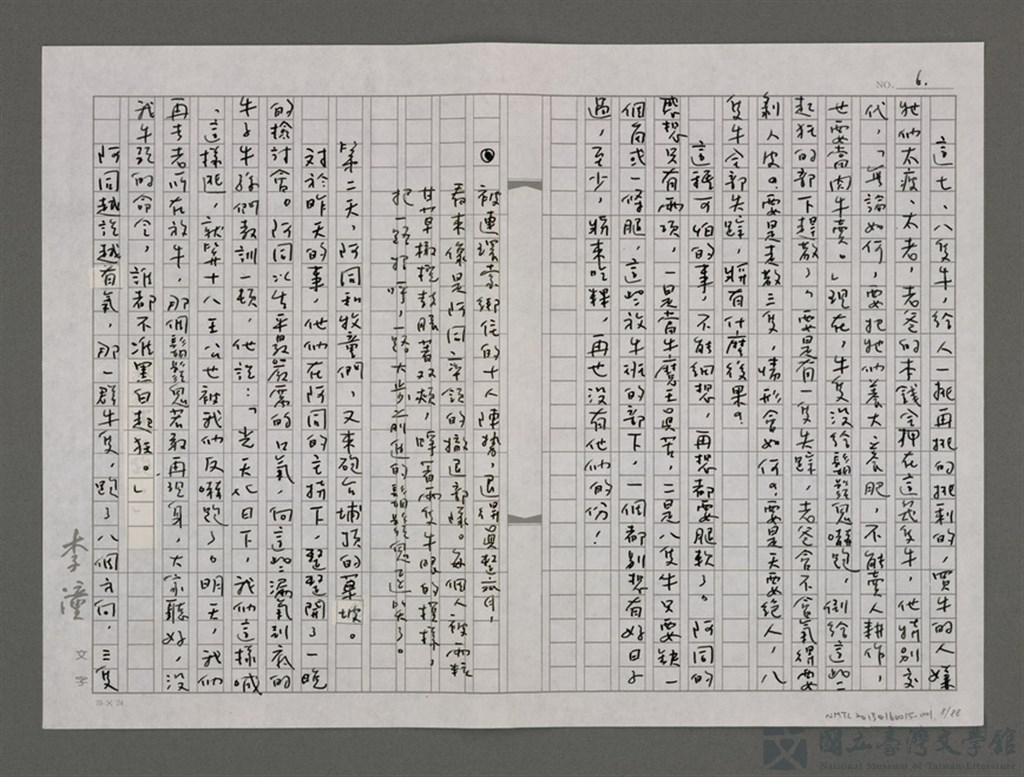 NO. 6.
這七、八隻牛，給人一挑再挑的挑剩的，買牛的人嫌
牠們太瘦、太老，老爸的本錢全押在這幾隻牛，他特別交
代，「無論如何，要把牠們養大、養肥，不能賣人耕作，
也要當肉牛賣。」現在，牛隻沒給鬍鬚鬼嚇跑，倒給這些
起狂的部下趕散了，要是有一隻失蹤，老爸會不會氣得要
剝人皮？要是走散三隻，情形會如何？要是天要絕人，八
隻牛全部失蹤，將有什麼後果？
這種可怕的事，不能細想，再想都要腿軟了。阿同的
感想只有兩項，一是當牛魔王真苦，二是八隻牛只要缺一
個角或一條腿，這些放牛班的部下，一個都別想有好日子
過，至少，將來吃粿，再也沒有他們的份！
被連環索綁住的十人陣勢，退得真整齊，
看來像是阿同率領的撤退部隊。每個人被兩粒
甘草橄欖鼓脹著双頰，睜著兩隻牛眼的模樣，
把一路，一路大步前進的鬍鬚鬼逗笑了。
第二天，阿同和牧童們，又來砲台埔頂的草坡。
对於昨天的事，他們在阿同的主持下，整整開了一晚
的檢討會。阿同以生平最嚴肅的口氣，向這些漏氣到底的
牛子牛孫們教訓一頓，他說：「光天化日下，我們這樣喊
、這樣吼，就算十八王公也被我們反嚇跑了。明天，我們
再去老所在放牛，那個鬍鬚鬼若敢再現身，大家聽好，沒
我牛頭的命令，誰都不准黑白起狂。」
阿同越說越有氣，那一群牛隻，跑了八個方向，三隻
李潼
文字
NMTL20130160015-001
國立臺灣文學館
National Museum of Taiwan Literature